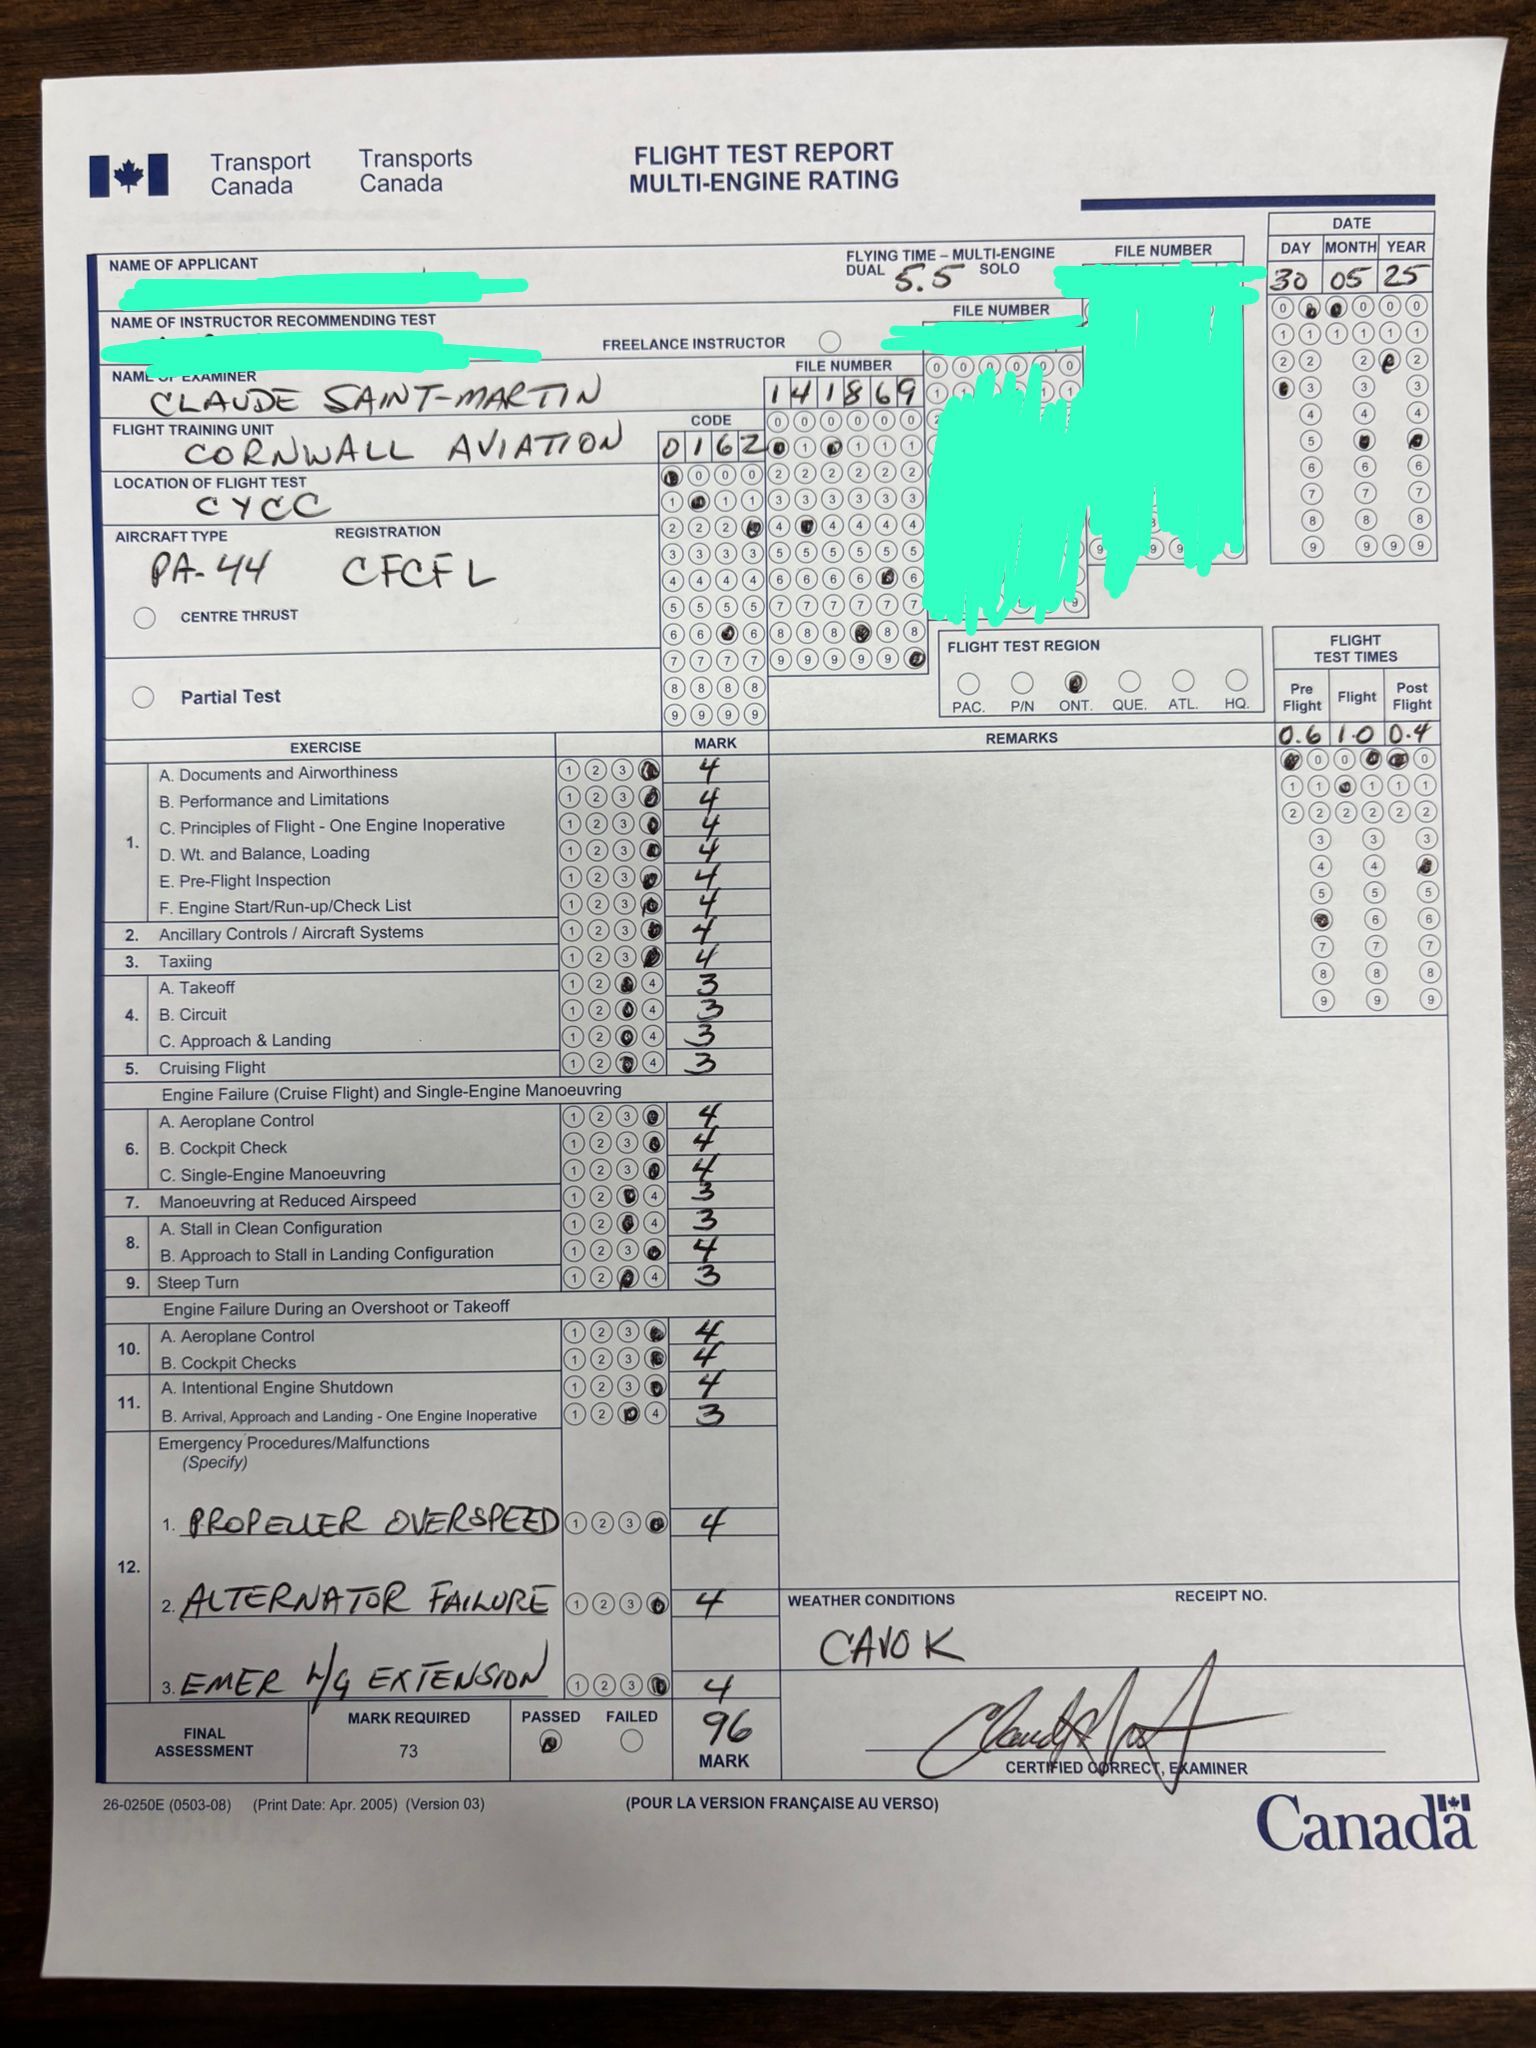 Transport Canada
Transports Canada
FLIGHT TEST REPORT
MULTI-ENGINE RATING
DATE
DAY MONTH YEAR
30 05 25
NAME OF APPLICANT
FLYING TIME – MULTI-ENGINE
DUAL 5.5 SOLO
FILE NUMBER
NAME OF INSTRUCTOR RECOMMENDING TEST
FREELANCE INSTRUCTOR
FILE NUMBER
NAME OF EXAMINER
CLAUDE SAINT-MARTIN
FILE NUMBER
141869
FLIGHT TRAINING UNIT
CORNWALL AVIATION
CODE
0162
LOCATION OF FLIGHT TEST
CYCC
AIRCRAFT TYPE
PA-44
REGISTRATION
CFCFL
CENTRE THRUST
Partial Test
FLIGHT TEST REGION
PAC. P/N ONT. QUE. ATL. HQ.
FLIGHT TEST TIMES
Pre Flight Flight Post Flight
0.6 1.0 0.4
EXERCISE MARK REMARKS
1.
A. Documents and Airworthiness 1 2 3 4
B. Performance and Limitations 1 2 3 4
C. Principles of Flight - One Engine Inoperative 1 2 3 4
D. Wt. and Balance, Loading 1 2 3 4
E. Pre-Flight Inspection 1 2 3 4
F. Engine Start/Run-up/Check List 1 2 3 4
2. Ancillary Controls / Aircraft Systems 1 2 3 4
3. Taxiing 1 2 3 4
4.
A. Takeoff 1 2 4 3
B. Circuit 1 2 4 3
C. Approach & Landing 1 2 4 3
5. Cruising Flight 1 2 4 3
Engine Failure (Cruise Flight) and Single-Engine Manoeuvring
6.
A. Aeroplane Control 1 2 3 4
B. Cockpit Check 1 2 3 4
C. Single-Engine Manoeuvring 1 2 3 4
7. Manoeuvring at Reduced Airspeed 1 2 4 3
8.
A. Stall in Clean Configuration 1 2 4 3
B. Approach to Stall in Landing Configuration 1 2 3 4
9. Steep Turn 1 2 4 3
Engine Failure During an Overshoot or Takeoff
10.
A. Aeroplane Control 1 2 3 4
B. Cockpit Checks 1 2 3 4
11.
A. Intentional Engine Shutdown 1 2 3 4
B. Arrival, Approach and Landing - One Engine Inoperative 1 2 4 3
12.
Emergency Procedures/Malfunctions
(Specify)
1. PROPELLER OVERSPEED 1 2 3 4
2. ALTERNATOR FAILURE 1 2 3 4
3. EMER L/G EXTENSION 1 2 3 4
WEATHER CONDITIONS
CAVOK
RECEIPT NO.
FINAL ASSESSMENT
MARK REQUIRED
73
PASSED FAILED
96
MARK
CERTIFIED CORRECT, EXAMINER
26-0250E (0503-08) (Print Date: Apr. 2005) (Version 03)
(POUR LA VERSION FRANÇAISE AU VERSO)
Canada